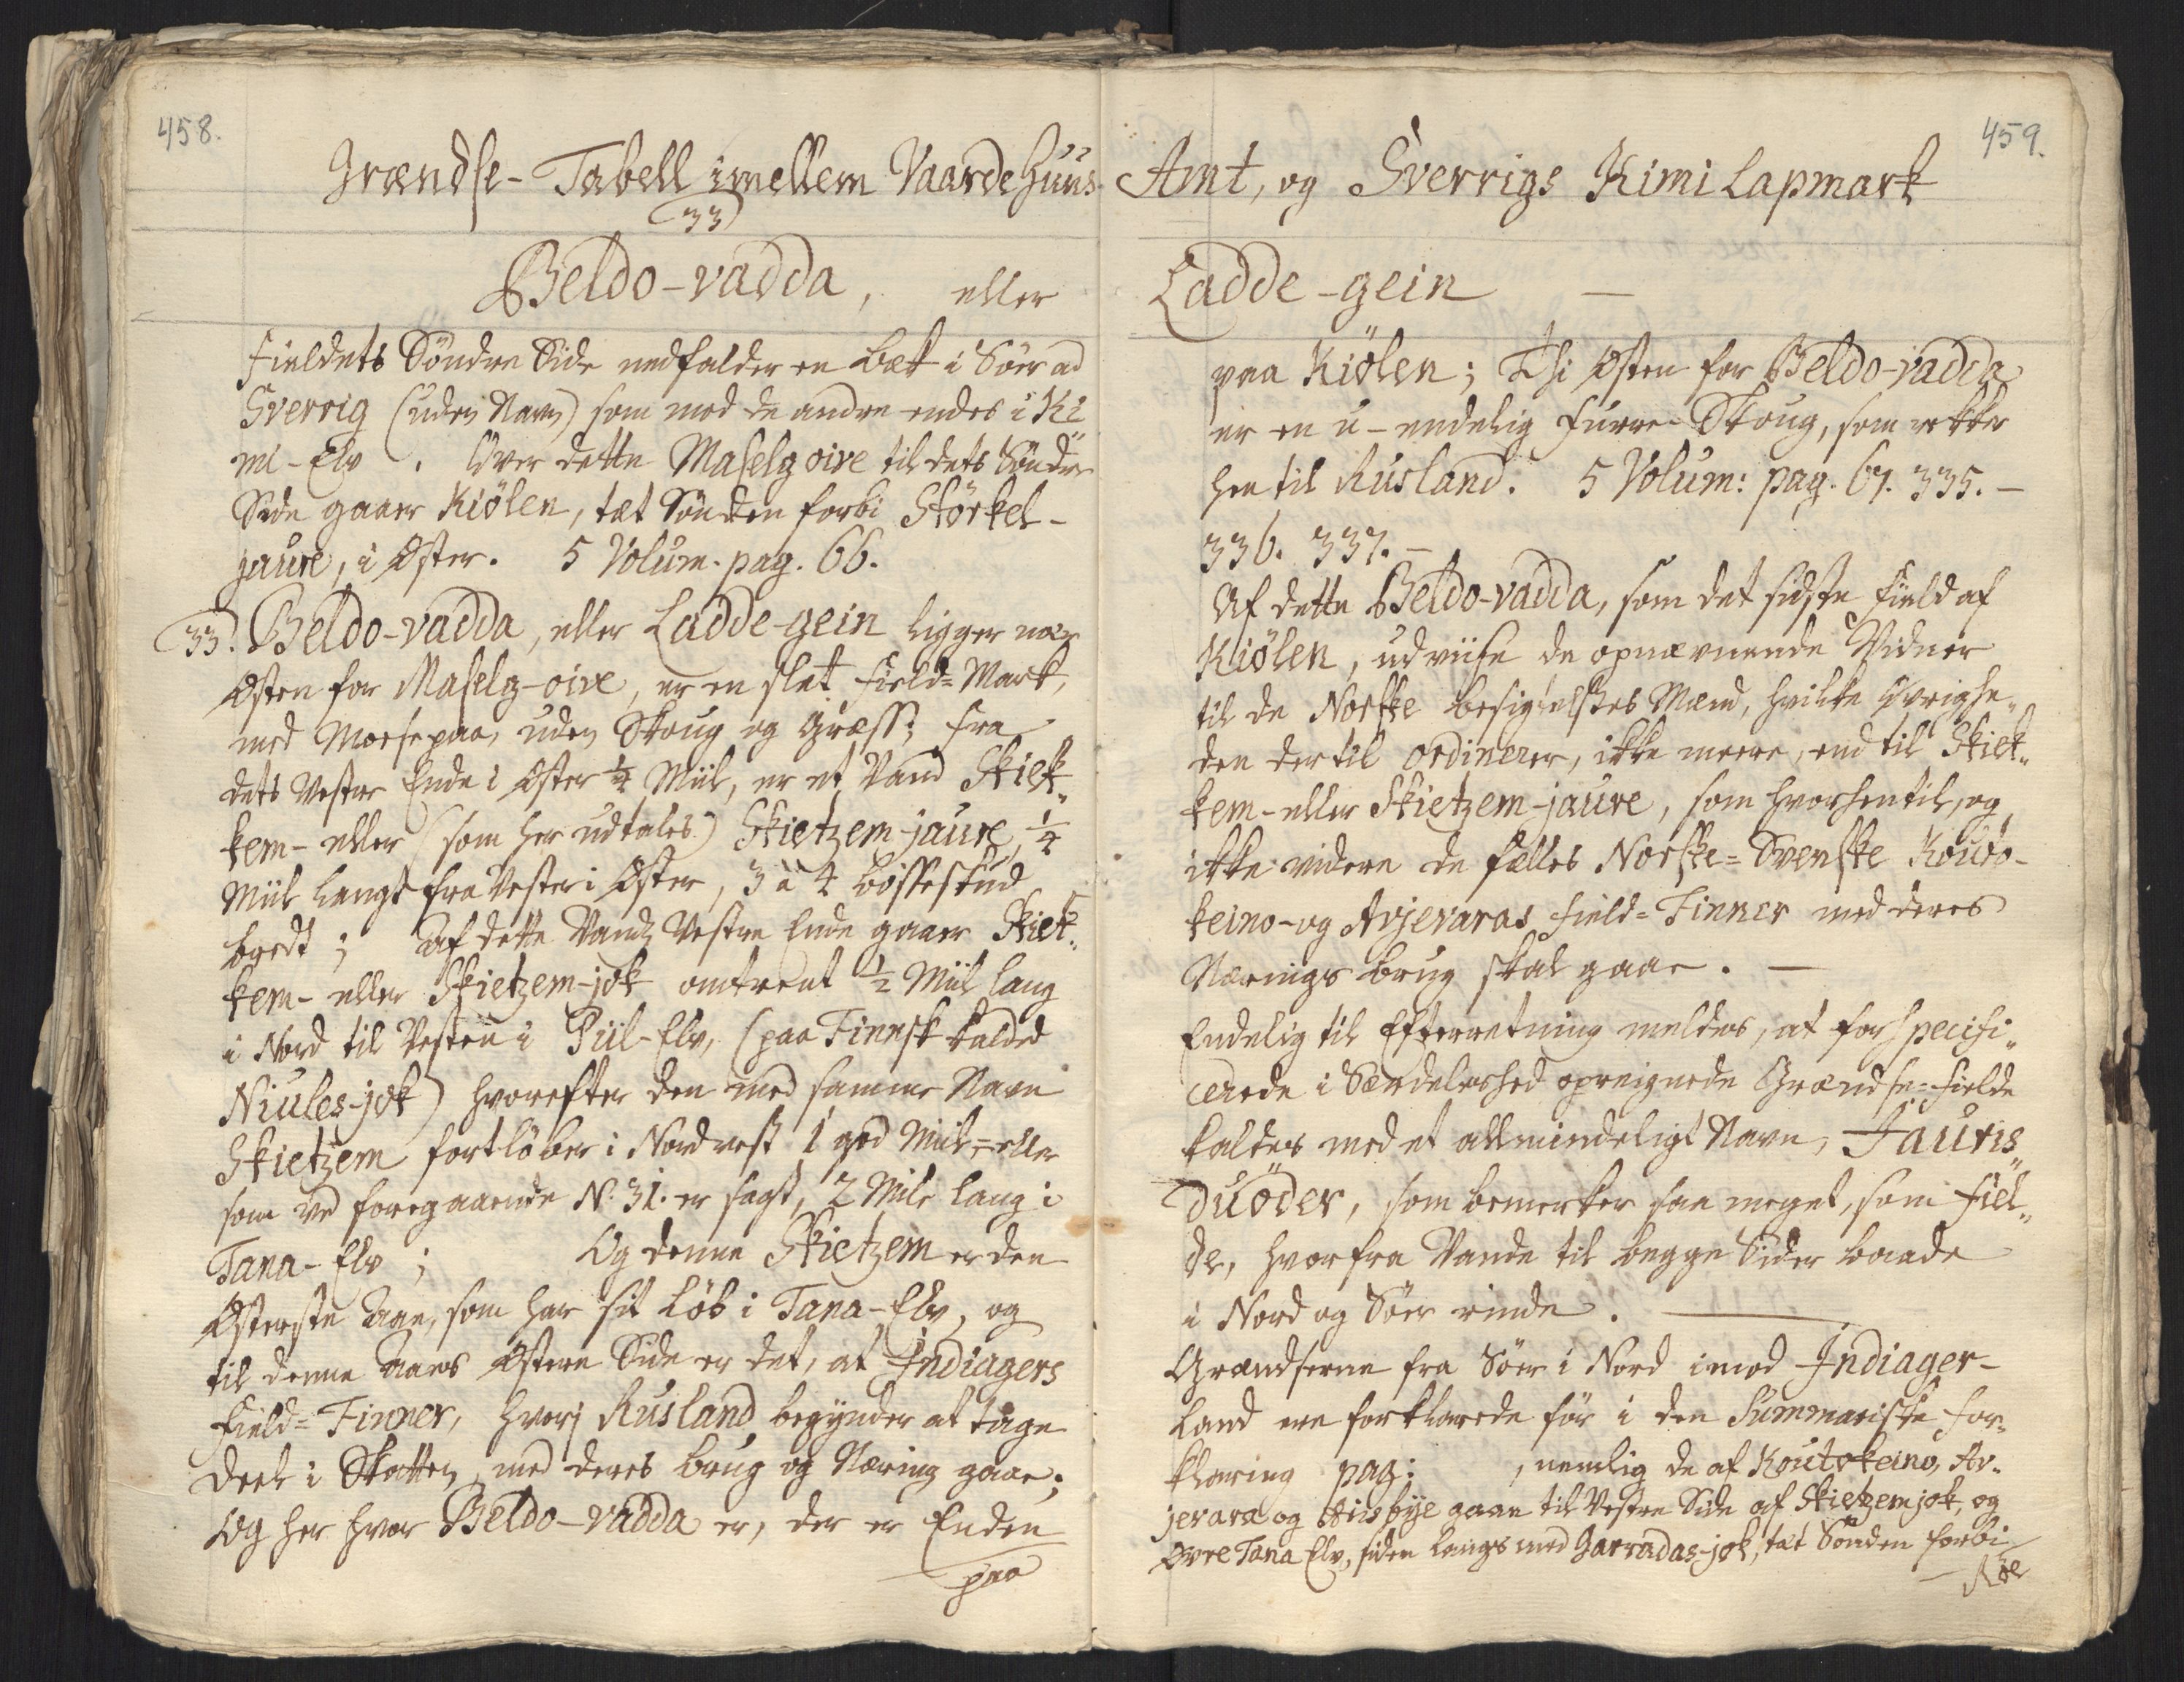 458.
Grændse-Tabell imellem VaardeHuus-
33
Beldo-vadda, eller
Fieldets Söndre Side nedfalder en Bæk i Söer ad
Sverrig (uden Navn) som med de andre endes i Ki„
mi-Elv. Over dette Maselg oive til dets Söndre
Side gaaer Kiölen, tæt Sönden forbi Störkel-
jaure, i Öster. 5 Volum. pag. 66.
33. Beldo-vadda, eller Ladde-gein ligger nær
Østen for Maselg-oive, er en slet Field-Mark,
med Moese paa, uden Skoug og Græss; fra
dets Vestre Ende i Öster ¼ Miil, er et Vand Skiek„
kem- eller (som her udtales) Skietzem-jaure, ¼
Miil langt fra Vester i Öster, 3 à 4 bösseskud
bredt; Af dette Vands Vestre Ende gaaer Skiek„
kem- eller Skietzem-jok omtrent ½ Miil lang
i Nord til Vesten i Piil-Elv, (paa Finnsk kalded
Niules-jok) hvorefter den med samme Navn
Skietzem fortlöber i Nordvest 1 god Miil- eller
som ved foregaaende N. 31. er sagt, 2 Mile lang i
Tana-Elv; Og denne Skietzem er den
Østerste Aae, som har sit Löb i Tana-Elv, og
til denne Aaes Östre Side er det, at Indiagers
Field-Finner, hvorj Rusland begynder at tage
Deel i Skatten, med deres Brug og Næring gaae;
Og her hvor Beldo-vadda er, der er Enden
paa
459.
Amt, og Sverrigs Kimi Lapmark
Ladde-gein —
paa Kiölen; Thi Østen for Beldo-vadda
er en u-endelig Furre-Skoug, som rekker
hen til Rusland. 5 Volum: pag. 67. 335. —
336. 337. —
Af dette Beldo-vadda, som det sidste Field af
Kiölen, udviise de opnævnende Vidner
til de Norske besigtelses Mænd, hvilke Övrighe„
den der til ordinerer, ikke meere, end til Skiek„
kem- eller Skietzem-jaure, som hvorhentil, og
ikke videre de fælles Norske-Svenske Kouto-
keino- og Avjevaras Field-Finner med deres
Nærings Brug skal gaae. —
Endelig til Efterretning meldes, at forspecifi„
cerede i Særdeleshed opreignede Grændse-Fielde
kaldes med et allmindeligt Navn, Jauris„
duöder, som bemerker saa meget, som Fiel„
de, hvorfra Vande til begge Sider baade
i Nord og Söer rinde. —
Grændserne fra Söer i Nord imod Indiager-
Land ere forklarede för i den Summariske For„
klaring pag: , nemlig de af Koutokeino, Av„
jevara og Aitsbye gaae til Vestre Side af Skietzemjok, og
Øvre Tana Elv, siden langs med Garradas-jok, tæt Sönden forbi